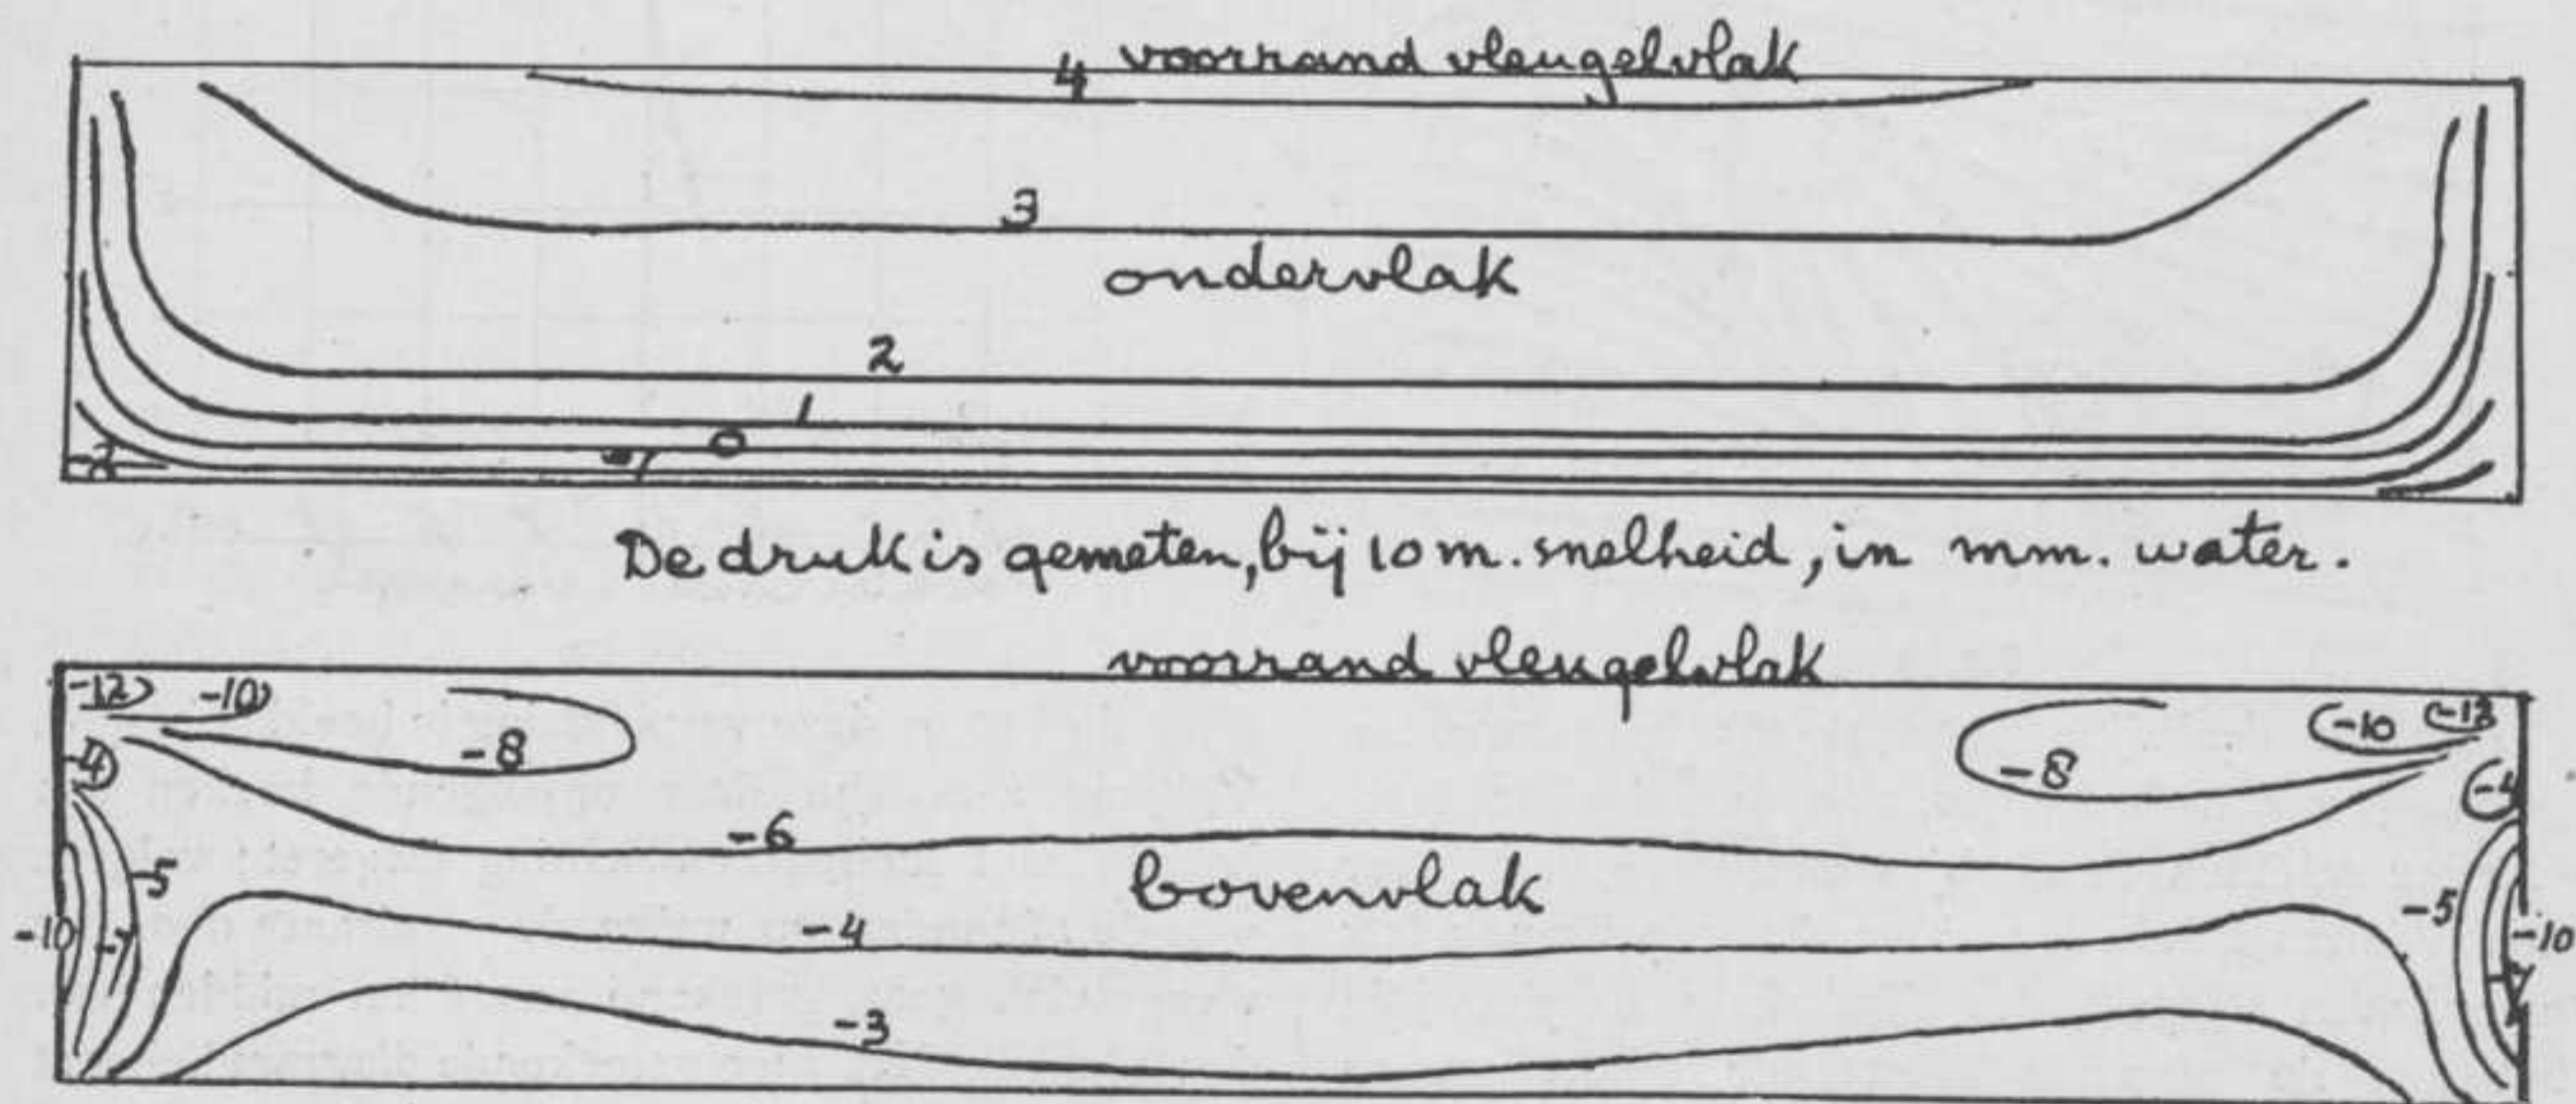 4 voorrand vleugelvlak
3
ondervlak
2
1
0
-1
-2
De druk is gemeten, bij 10 m. snelheid, in mm. water.
voorrand vleugelvlak
-12 -10 -10 -12
-8 -8
-4 -4
-6
-5 bovenvlak -5
-10 -7 -4 -10
-7
-3